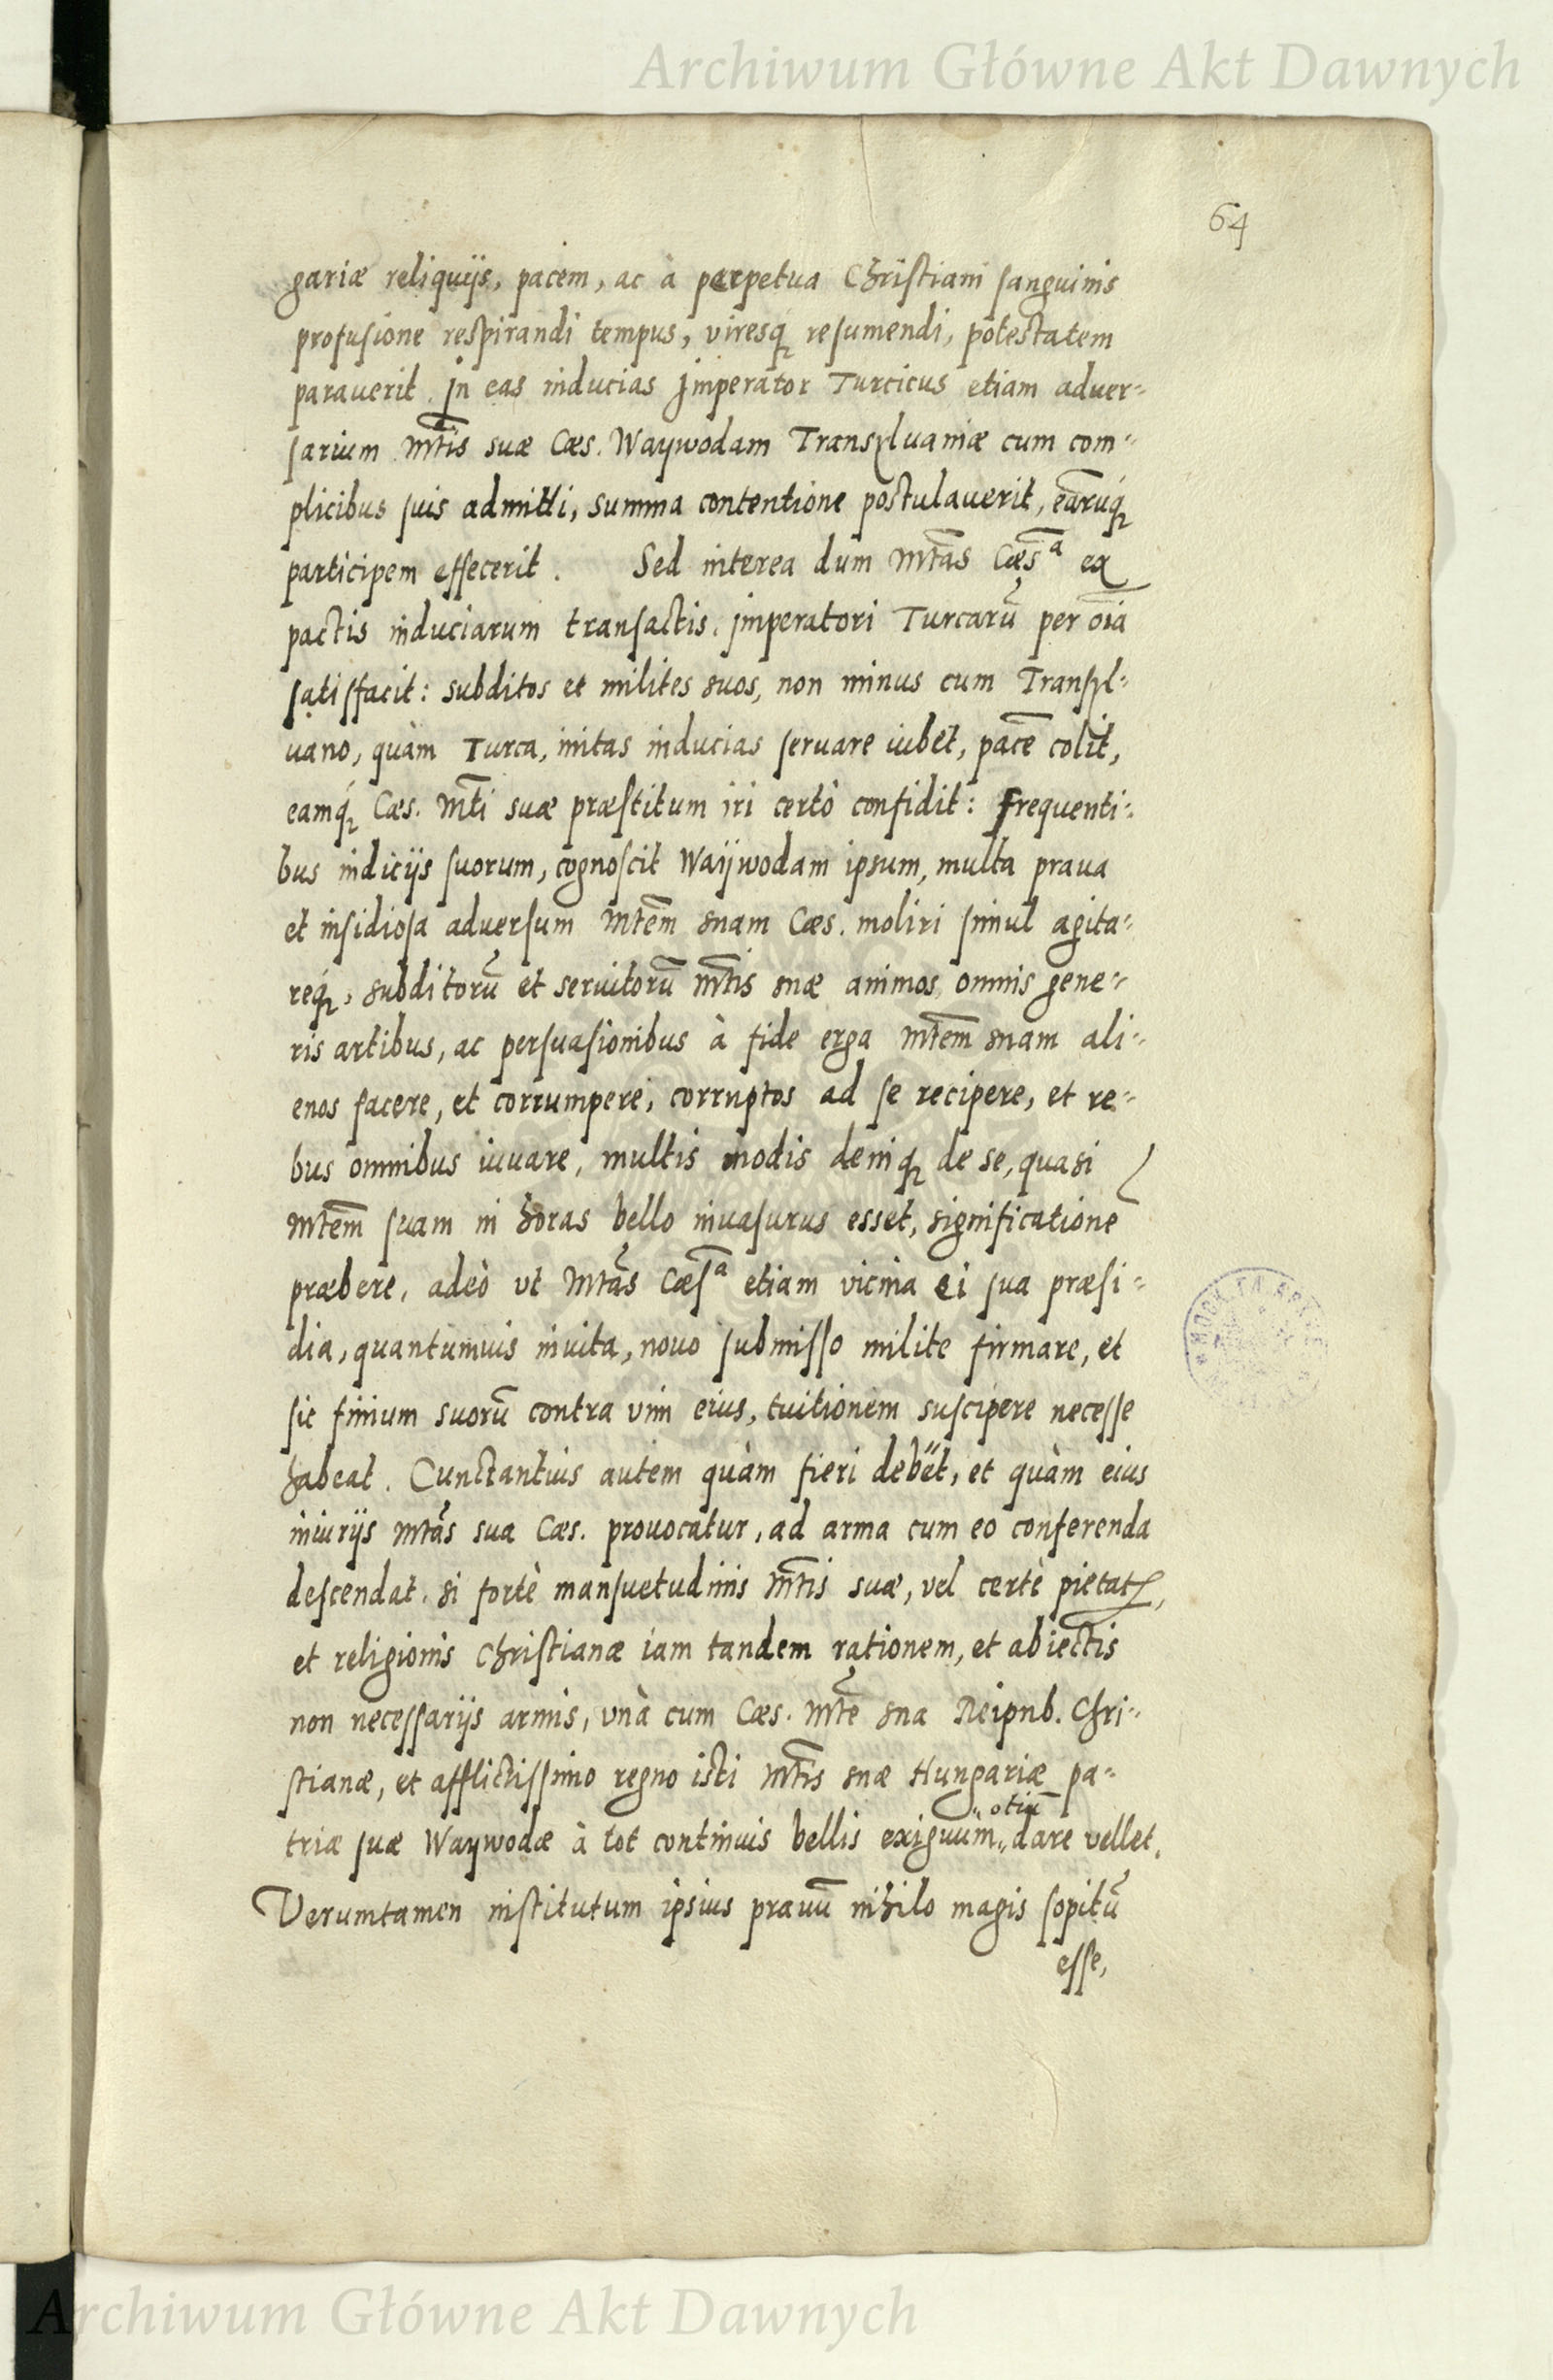 Archiwum Główne Akt Dawnych
64
gariæ reliquijs, pacem, ac à perpetua Christiani sanguinis
profusione respirandi tempus, viresq́ꝫ resumendi, potestatem
parauerit. In eas inducias Imperator Turcicus etiam aduer=
sarium Mt̃is suæ Cæs. Waywodam Transyluaniæ cum com=
plicibus suis admitti, summa contentione postulauerit, earũq́ꝫ
participem effecerit. Sed interea dum Mt̃as Cæs̃ᵃ ex
pactis induciarum transactis, Imperatori Turcarũ per oĩa
satisfacit: subditos et milites suos, non minus cum Transyl=
uano, quàm Turca, initas inducias seruare iubet, pacẽ colit,
eamq́ꝫ Cæs. Mt̃i suæ præstitum iri certò confidit: Frequenti=
bus indicijs suorum, cognoscit Waÿwodam ipsum, multa praua
et insidiosa aduersum Mt̃em suam Cæs. moliri simul agita=
req́ꝫ, subditorũ et seruitorũ Mt̃is suæ animos, omnis gene=
ris artibus, ac persuasionibus à fide erga Mt̃em suam ali=
enos facere, et corrumpere, corruptos ad se recipere, et re=
bus omnibus iuuare, multis modis deniqꝫ de se, quasi
Mt̃em suam in horas bello inuasurus esset, significationẽ
præbere, adeò vt Mt̃as Cæs̃ᵃ etiam vicina ei sua præsi=
dia, quantumuis inuita, nouo submisso milite firmare, et
sic finium suorũ contra vim eius, tuitionem suscipere necesse
habeat. Cunctantius autem quàm fieri debët, et quàm eius
iniurijs Mt̃as sua Cæs. prouocatur, ad arma cum eo conferenda
descendat. si fortè mansuetudinis Mt̃is suæ, vel certè pietatꝭ,
et religionis Christianæ iam tandem rationem, et abiectis
non necessarijs armis, vnà cum Cæs. Mt̃e sua Reipub. Chri=
stianæ, et afflictissimo regno isti Mt̃is suæ Hungariæ pa=
otiũ
triæ suæ Waywodæ à tot continuis bellis exiguum„ dare vellet.
Verumtamen institutum ipsius prauũ nihilo magis sopitũ
esse,
Archiwum Główne Akt Dawnych